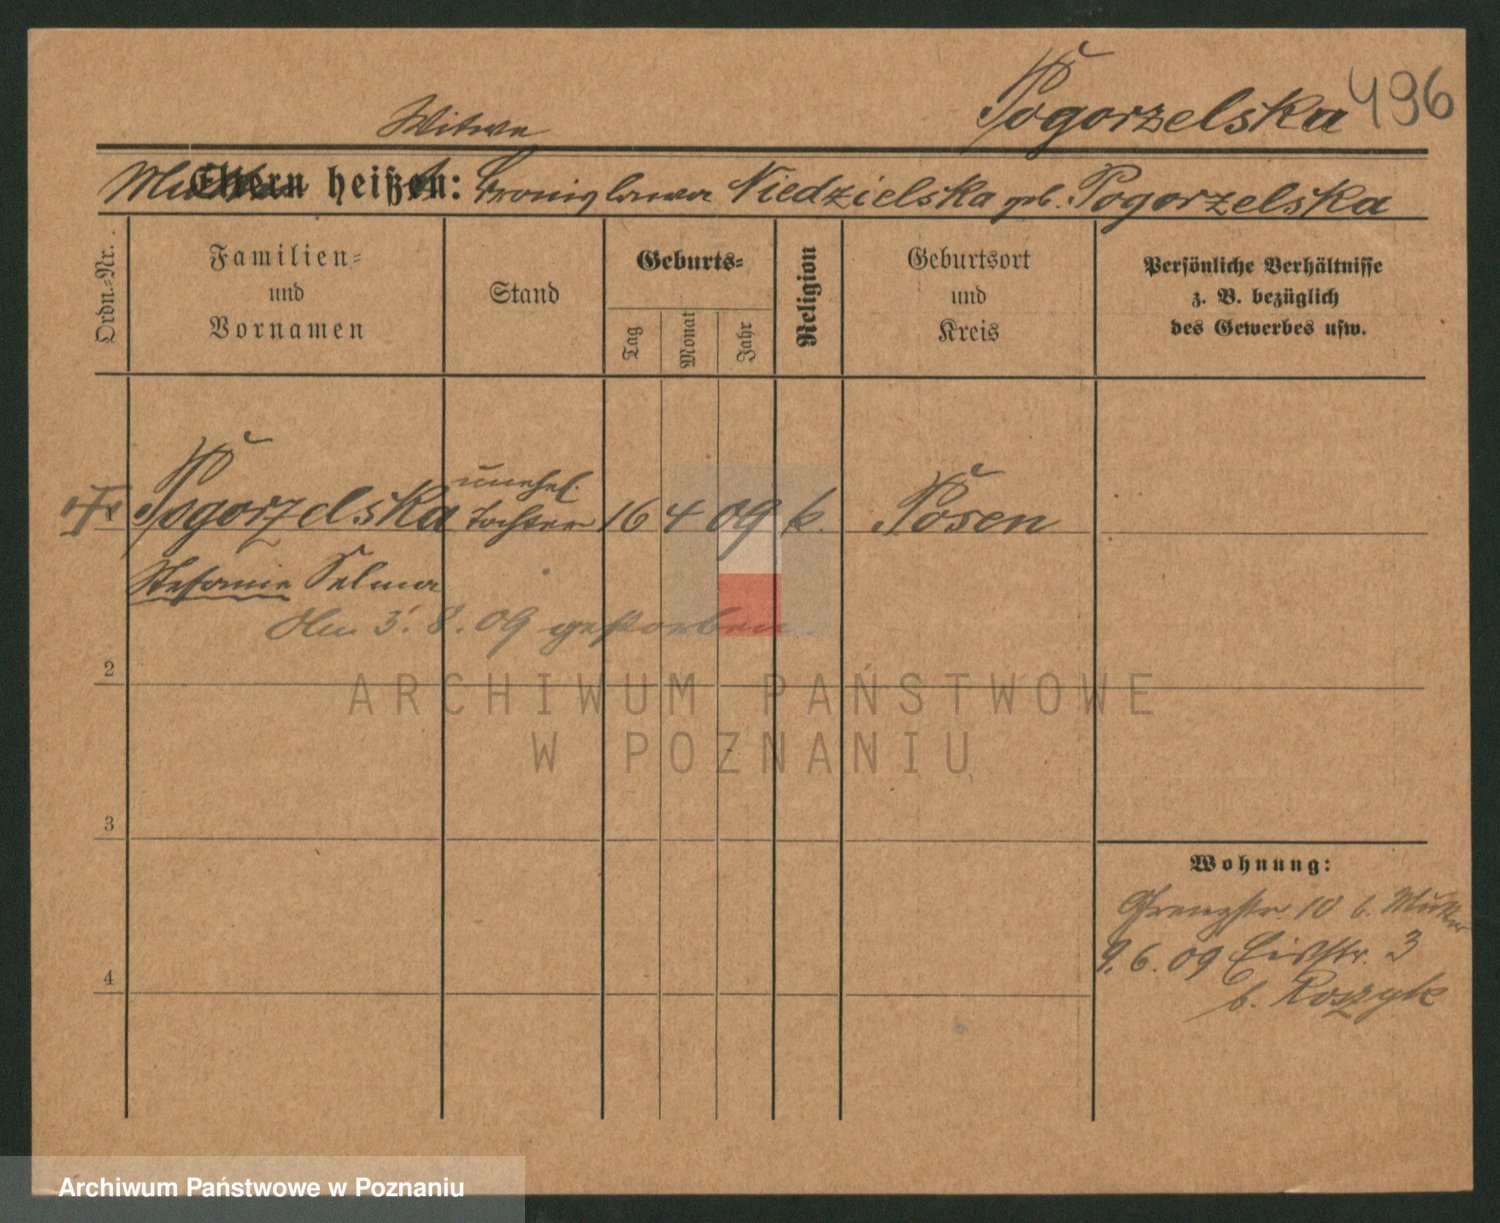 Pogorzelska 496
Witwe
Mutter
Eltern heißen: Bronislawa Niedzielska geb. Pogorzelska
Ordn.-Nr.
Familien-
und
Vornamen
Stand
Geburts-
Tag
Monat
Jahr
Religion
Geburtsort
und
Kreis
Persönliche Verhältnisse
z. B. bezüglich
des Gewerbes usw.
Pogorzelska unehel. Tochter 16 4 09 k. Posen
Stefanie Selma
Am 3. 8. 09 gestorben.
2
3
4
Wohnung:
Grenzstr. 10 b. Mutter
9. 6. 09 3
b. Koszyk
ARCHIWUM PAŃSTWOWE
W POZNANIU
Archiwum Państwowe w Poznaniu